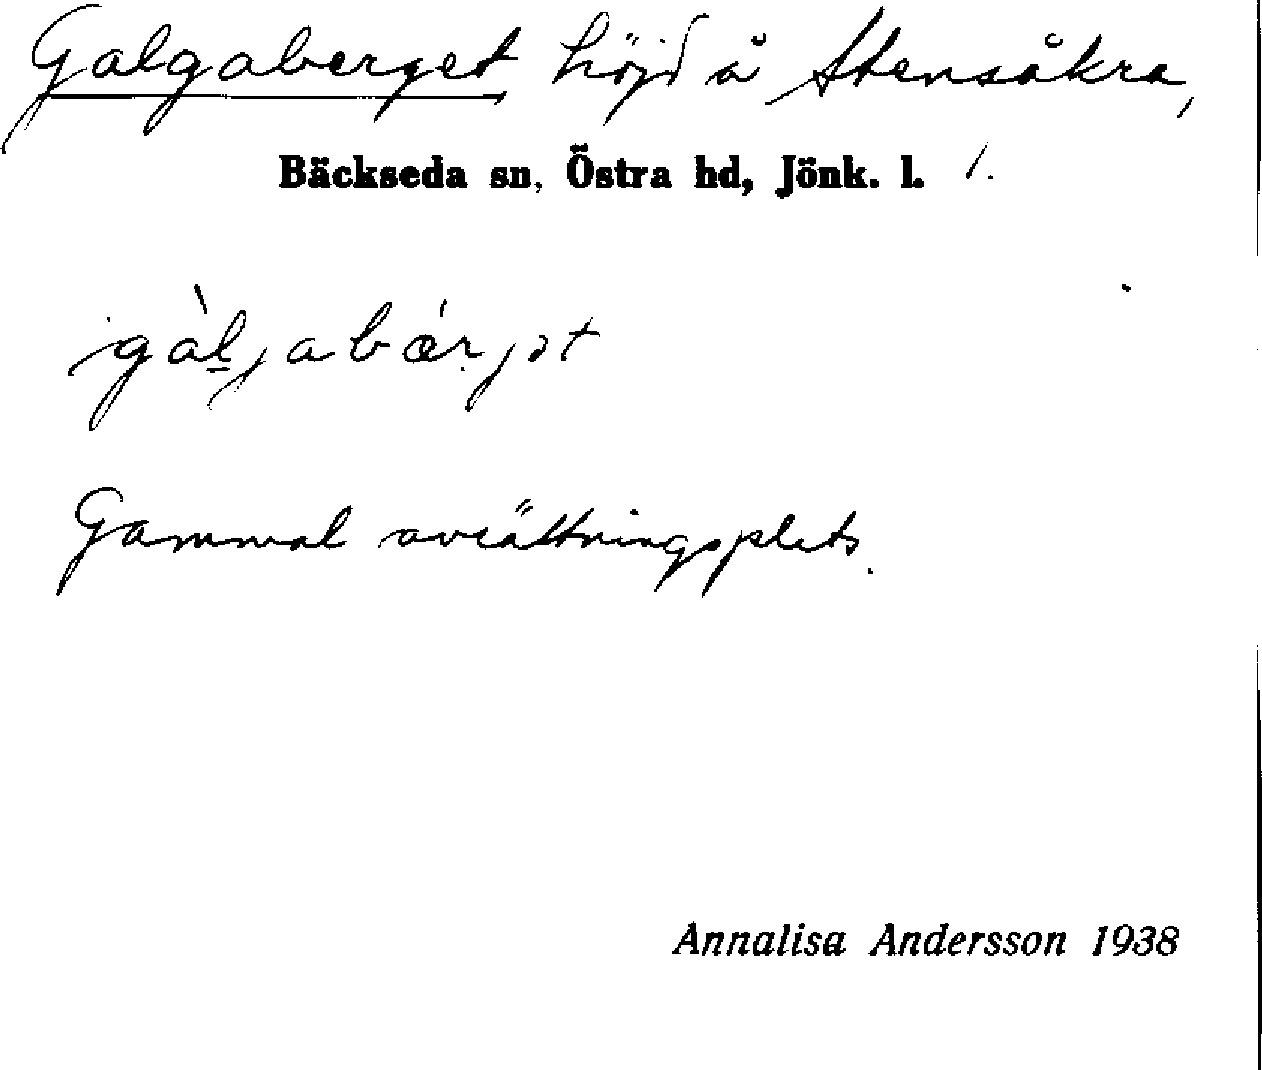 Galgaberget höjd å Stensåkra,
Bäckseda sn, Östra hd, Jönk. l. 1.
gàl̠jabǽrjət
Gammal avrättningsplats.
Annalisa Andersson 1938